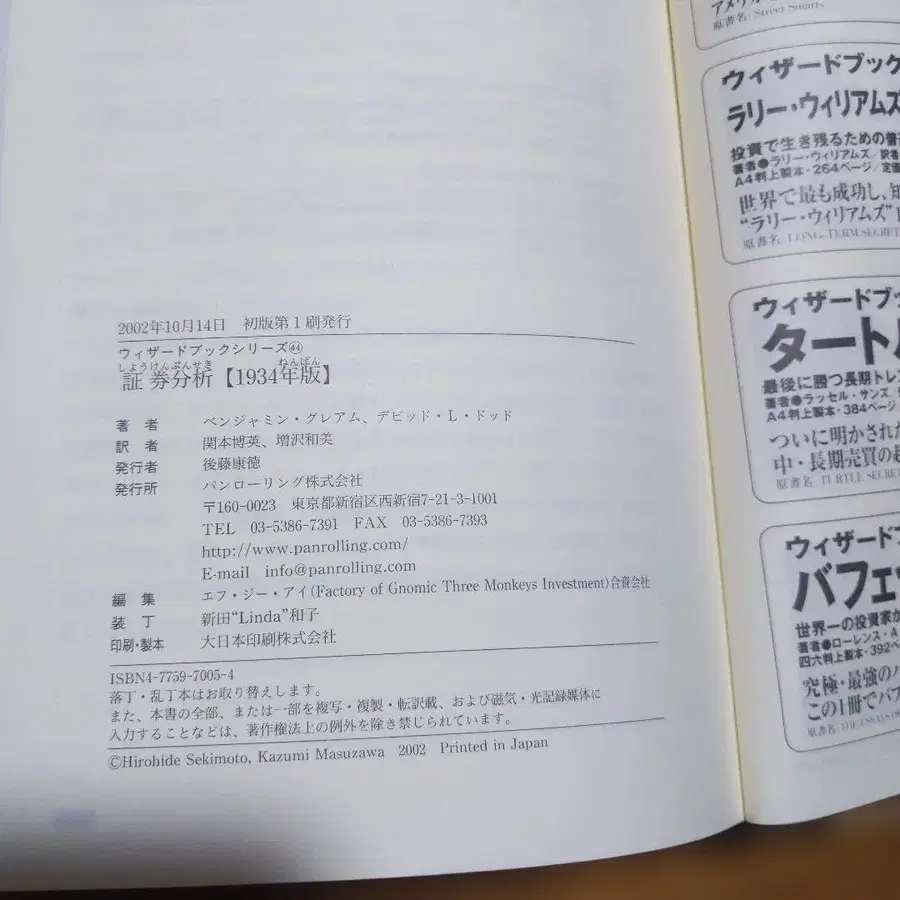 2002年10月14日　初版第1刷発行
ウィザードブックシリーズ㊹
しょうけんぶんせき　ねんばん
証券分析【1934年版】
著者　ベンジャミン・グレアム、デビッド・L・ドッド
訳者　関本博英、増沢和美
発行者　後藤康徳
発行所　パンローリング株式会社
〒160-0023　東京都新宿区西新宿7-21-3-1001
TEL　03-5386-7391　FAX　03-5386-7393
http://www.panrolling.com/
E-mail　info@panrolling.com
編集　エフ・ジー・アイ(Factory of Gnomic Three Monkeys Investment)合資会社
装丁　新田“Linda”和子
印刷・製本　大日本印刷株式会社
ISBN4-7759-7005-4
落丁・乱丁本はお取り替えします。
また、本書の全部、または一部を複写・複製・転訳載、および磁気・光記録媒体に
入力することなどは、著作権法上の例外を除き禁じられています。
©Hirohide Sekimoto, Kazumi Masuzawa　2002　Printed in Japan
アメリカ
原書名：Street Smarts
ウィザードブック
ラリー・ウィリアムズ
投資で生き残るための普
著者●ラリー・ウィリアムズ／訳者
A4判上製本・264ページ／定価
世界で最も成功し、知
“ラリー・ウィリアムズ”
原書名：LONG-TERM SECRE
ウィザードブッ
タートル
最後に勝つ長期トレン
著者●ラッセル・サンズ／
A4判上製本・384ページ
ついに明かされた
中・長期売買の超
原書名：TURTLE SECRE
ウィザードブ
バフェッ
世界一の投資家が
著者●ローレンス・A
四六判上製本・392ペ
究極・最強のバ
この1冊でバフ
原書名：THE ESSAYS O